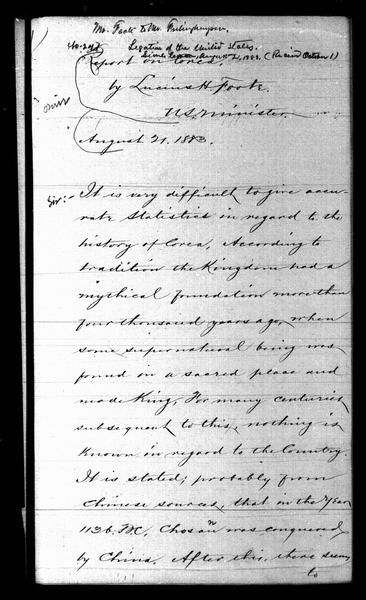 Mr. Foote to Mr. Frelinghuysen.
Legation of the United States.
August 21, 1883. (Received October 1)
Report on Corea.
by Lucius H. Foote
U S Minister.
August 21. 1883.
Sir:- It is very difficult to give accu-
rate statistics in regard to the
history of Corea. According to
tradition the Kingdom had a
mythical foundation more than
four thousand years ago, when
some supernatural being was
found on a sacred place and
made King. For many centuries
subsequent to this, nothing is
known in regard to the Country.
It is stated; probably from
Chinese sources, that in the Year
1136 B.C. Chosan was conquered
by China. After this, there seems
to